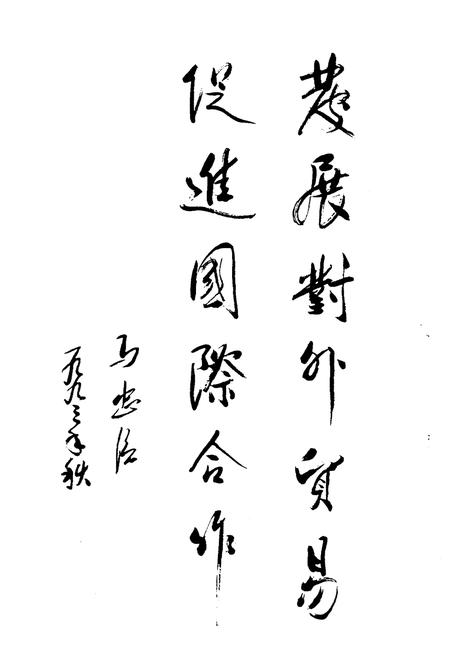 發展對外貿易
促進國際合作
馬忠信
一九九三年秋